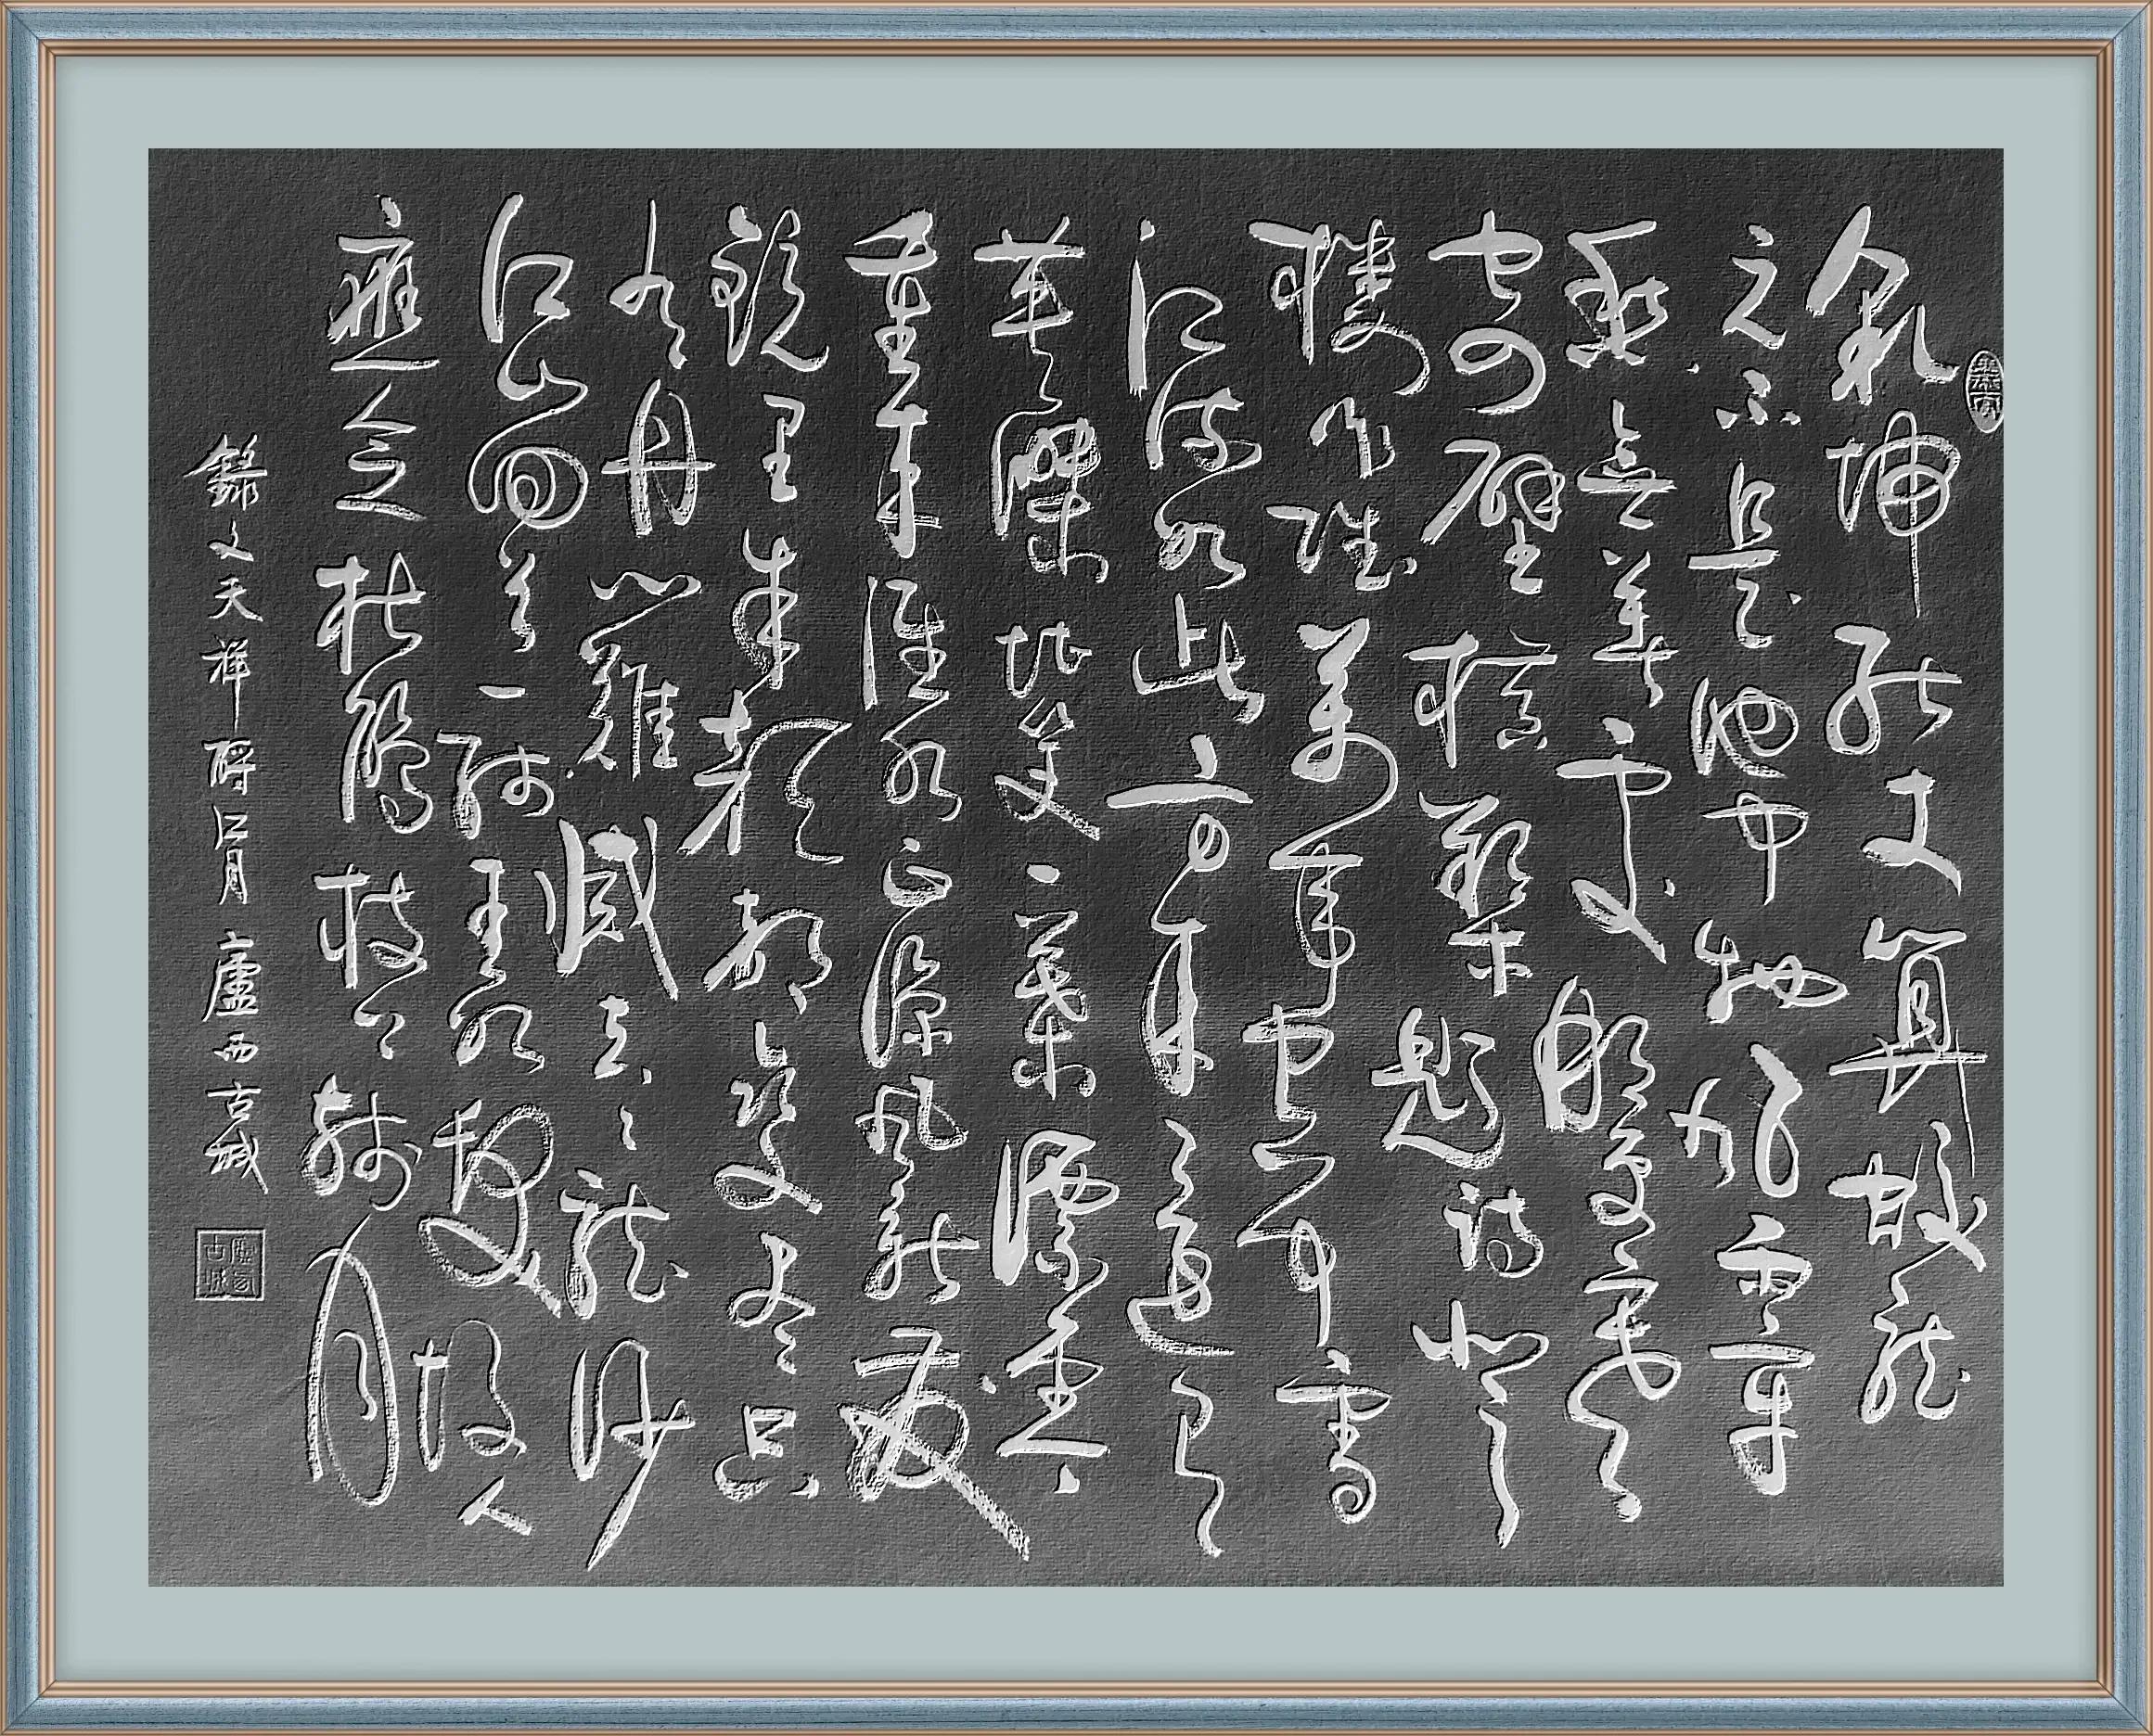 乾坤能大算蛟龍
元不是池中物風雨牢
愁無著處那更寒
四壁橫槊題詩登
樓作賦萬事空中雪
江流如此方來還有
英傑堪笑一葉漂零
重來淮水正涼風新發
鏡里朱顏都變盡只
有丹心難滅去去龍沙
江山回首一線青如髮故人
應念杜鵑枝上殘月
錄文天祥酹江月 盧西古城